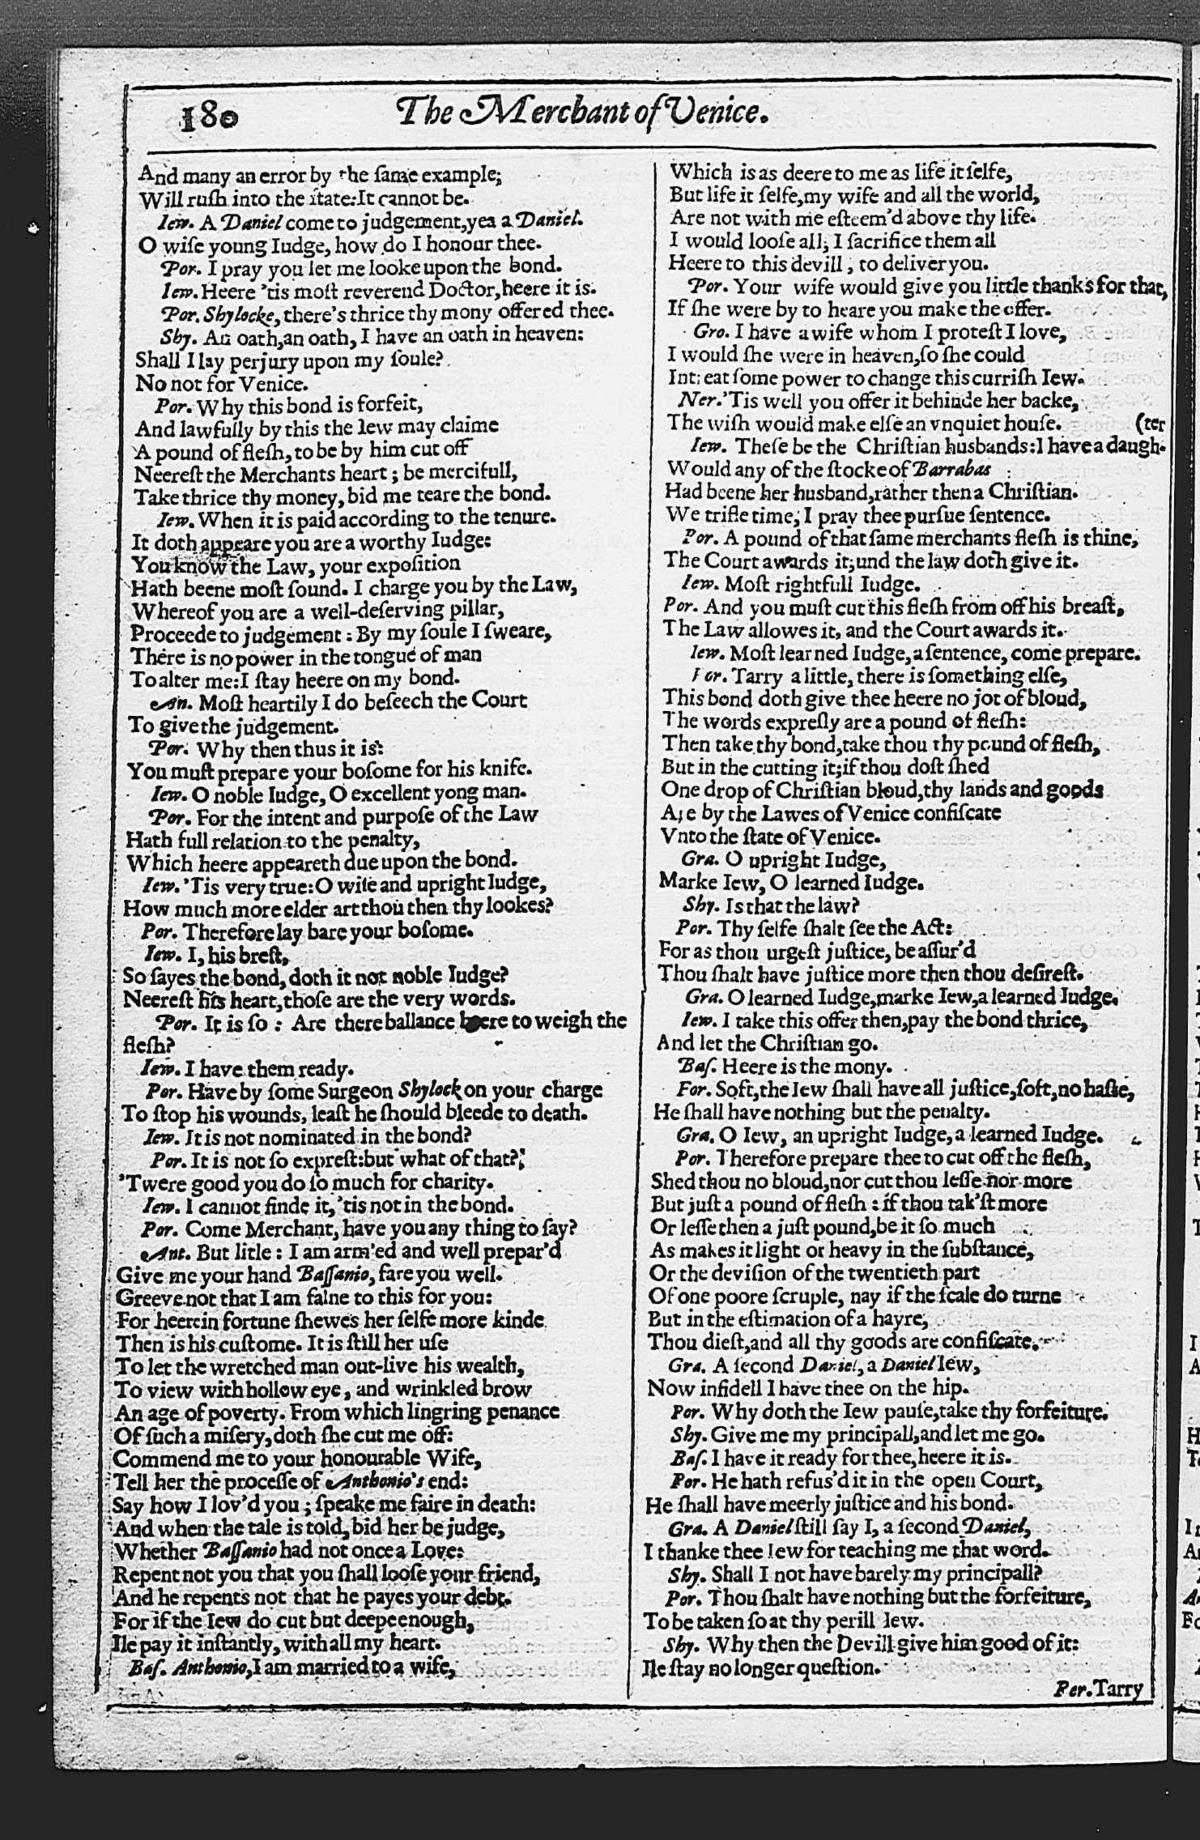 180 The Merchant of Venice.
And many an error by the ſame example;
Will ruſh into the ſtate: It cannot be.
Iew. A Daniel come to judgement, yea a Daniel.
O wiſe young Iudge, how do I honour thee.
Por. I pray you let me looke upon the bond.
Iew. Heere 'tis moſt reverend Doctor, heere it is.
Por. Shylocke, there's thrice thy mony offered thee.
Shy. An oath, an oath, I have an oath in heaven:
Shall I lay perjury upon my ſoule?
No not for Venice.
Por. Why this bond is forfeit,
And lawfully by this the Iew may claime
A pound of fleſh, to be by him cut off
Neereſt the Merchants heart; be mercifull,
Take thrice thy money, bid me teare the bond.
Iew. When it is paid according to the tenure.
It doth appeare you are a worthy Iudge:
You know the Law, your expoſition
Hath beene moſt ſound. I charge you by the Law,
Whereof you are a well-deſerving pillar,
Proceede to judgement: By my ſoule I ſweare,
There is no power in the tongue of man
To alter me: I ſtay heere on my bond.
An. Moſt heartily I do beſeech the Court
To give the judgement.
Por. Why then thus it is:
You muſt prepare your boſome for his knife.
Iew. O noble Iudge, O excellent yong man.
Por. For the intent and purpoſe of the Law
Hath full relation to the penalty,
Which heere appeareth due upon the bond.
Iew. 'Tis very true: O wiſe and upright Iudge,
How much more elder art thou then thy lookes?
Por. Therefore lay bare your boſome.
Iew. I, his breſt,
So ſayes the bond, doth it not noble Iudge?
Neereſt his heart, thoſe are the very words.
Por. It is ſo: Are there ballance heere to weigh the
fleſh?
Iew. I have them ready.
Por. Have by ſome Surgeon Shylock on your charge
To ſtop his wounds, leaſt he ſhould bleede to death.
Iew. It is not nominated in the bond?
Por. It is not ſo expreſt: but what of that?
'Twere good you do ſo much for charity.
Iew. I cannot finde it, 'tis not in the bond.
Por. Come Merchant, have you any thing to ſay?
Ant. But litle: I am arm'ed and well prepar'd
Give me your hand Baſſanio, fare you well.
Greeve not that I am falne to this for you:
For heerein fortune ſhewes her ſelfe more kinde
Then is his cuſtome. It is ſtill her uſe
To let the wretched man out-live his wealth,
To view with hollow eye, and wrinkled brow
An age of poverty. From which lingring penance
Of ſuch a miſery, doth ſhe cut me off:
Commend me to your honourable Wife,
Tell her the proceſſe of Anthonio's end:
Say how I lov'd you; ſpeake me faire in death:
And when the tale is told, bid her be judge,
Whether Baſſanio had not once a Love:
Repent not you that you ſhall looſe your friend,
And he repents not that he payes your debt.
For if the Iew do cut but deepe enough,
Ile pay it inſtantly, with all my heart.
Baſ. Anthonio, I am married to a wife,
Which is as deere to me as life it ſelfe,
But life it ſelfe, my wife and all the world,
Are not with me eſteem'd above thy life.
I would looſe all, I ſacrifice them all
Heere to this devill, to deliver you.
Por. Your wife would give you little thanks for that,
If ſhe were by to heare you make the offer.
Gro. I have a wife whom I proteſt I love,
I would ſhe were in heaven, ſo ſhe could
Intreat ſome power to change this curriſh Iew.
Ner. 'Tis well you offer it behinde her backe,
The wiſh would make elſe an vnquiet houſe. (ter
Iew. Theſe be the Chriſtian husbands: I have a daugh-
Would any of the ſtocke of Barrabas
Had beene her husband, rather then a Chriſtian.
We trifle time, I pray thee purſue ſentence.
Por. A pound of that ſame merchants fleſh is thine,
The Court awards it; und the law doth give it.
Iew. Moſt rightfull Iudge.
Por. And you muſt cut this fleſh from off his breaſt,
The Law allowes it, and the Court awards it.
Iew. Moſt learned Iudge, a ſentence, come prepare.
Por. Tarry a little, there is ſomething elſe,
This bond doth give thee heere no jot of bloud,
The words expreſly are a pound of fleſh:
Then take thy bond, take thou thy pound of fleſh,
But in the cutting it; if thou doſt ſhed
One drop of Chriſtian bloud, thy lands and goods
Are by the Lawes of Venice confiſcate
Vnto the ſtate of Venice.
Gra. O upright Iudge,
Marke Iew, O learned Iudge.
Shy. Is that the law?
Por. Thy ſelfe ſhalt ſee the Act:
For as thou urgeſt juſtice, be aſſur'd
Thou ſhalt have juſtice more then thou deſireſt.
Gra. O learned Iudge, marke Iew, a learned Iudge.
Iew. I take this offer then, pay the bond thrice,
And let the Chriſtian go.
Baſ. Heere is the mony.
For. Soft, the Iew ſhall have all juſtice, ſoft, no haſte,
He ſhall have nothing but the penalty.
Gra. O Iew, an upright Iudge, a learned Iudge.
Por. Therefore prepare thee to cut off the fleſh,
Shed thou no bloud, nor cut thou leſſe nor more
But juſt a pound of fleſh: if thou tak'ſt more
Or leſſe then a juſt pound, be it ſo much
As makes it light or heavy in the ſubſtance,
Or the deviſion of the twentieth part
Of one poore ſcruple, nay if the ſcale do turne
But in the eſtimation of a hayre,
Thou dieſt, and all thy goods are confiſcate.
Gra. A ſecond Daniel, a Daniel Iew,
Now infidell I have thee on the hip.
Por. Why doth the Iew pauſe, take thy forfeiture.
Shy. Give me my principall, and let me go.
Baſ. I have it ready for thee, heere it is.
Por. He hath refus'd it in the open Court,
He ſhall have meerly juſtice and his bond.
Gra. A Daniel ſtill ſay I, a ſecond Daniel,
I thanke thee Iew for teaching me that word.
Shy. Shall I not have barely my principall?
Por. Thou ſhalt have nothing but the forfeiture,
To be taken ſo at thy perill Iew.
Shy. Why then the Devill give him good of it:
Ile ſtay no longer queſtion.
Per. Tarry